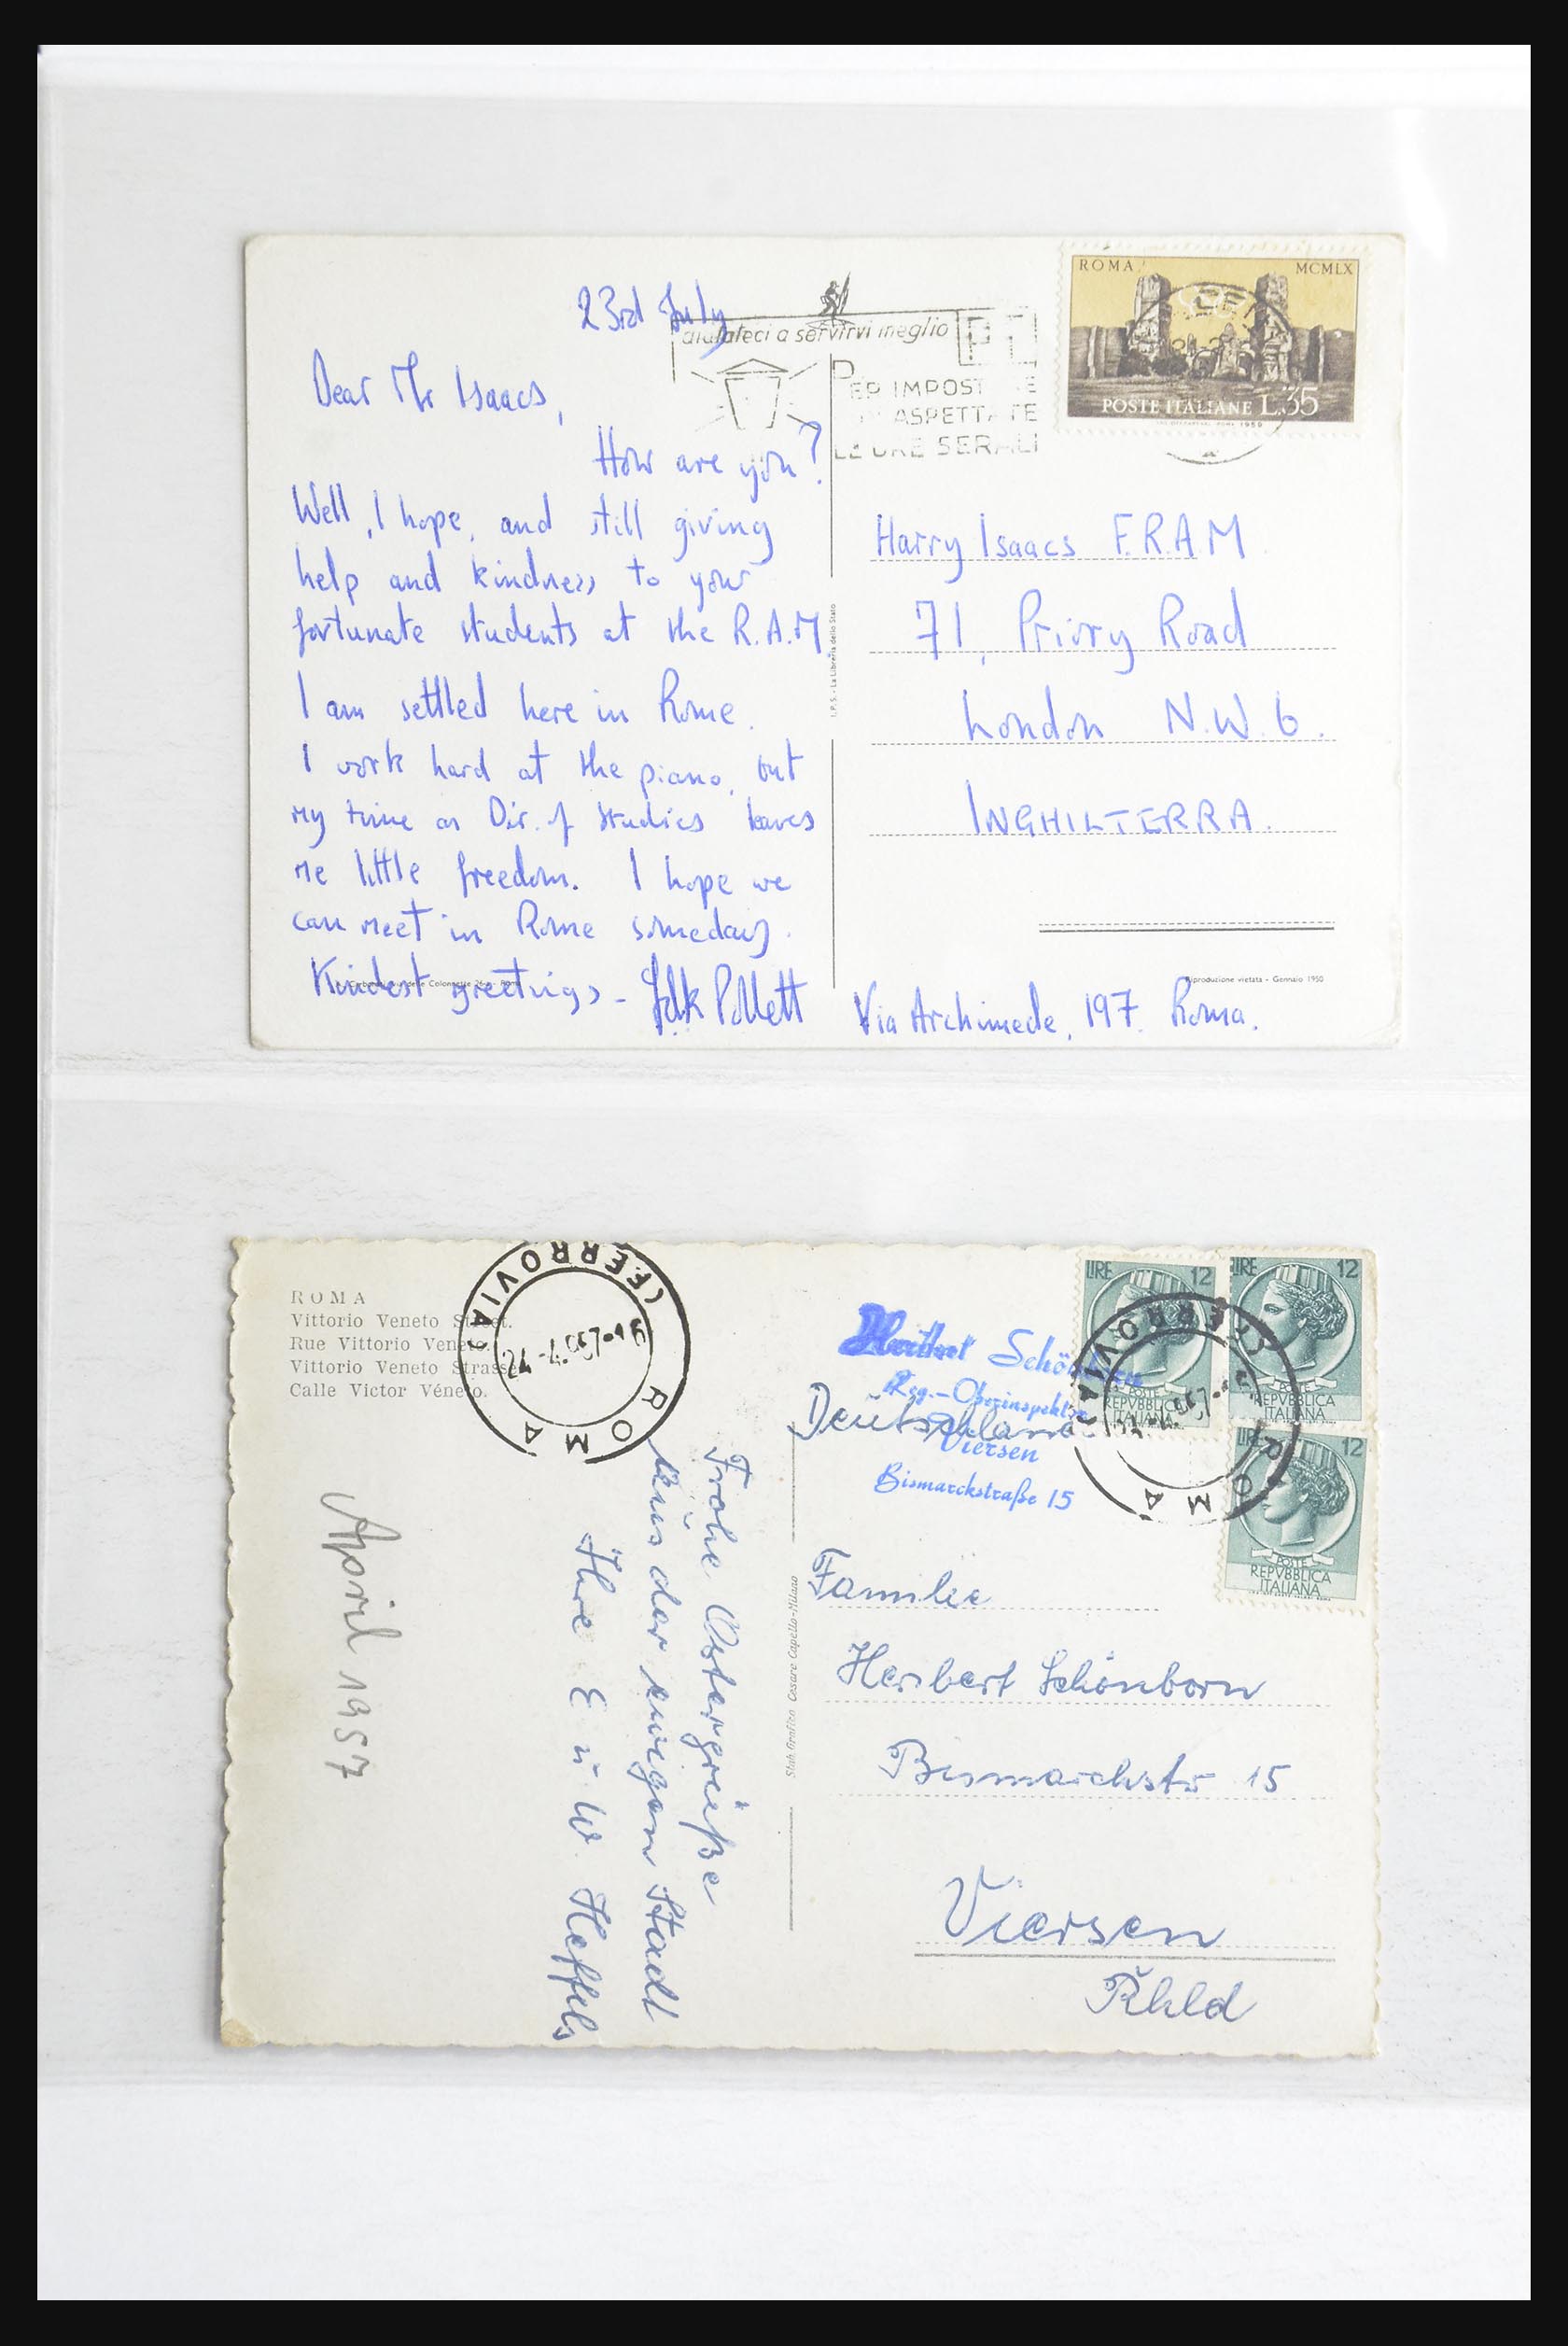 23rd July
aiutateci a servirvi meglio
PER IMPOSTARE
ASPETTATE
LE ORE SERALI
ROMA MCMLX
POSTE ITALIANE L.35
Dear Mr Isaacs,
How are you?
Well, I hope, and still giving
help and kindness to your
fortunate students at the R.A.M
I am settled here in Rome.
I work hard at the piano, but
my time as Dir. of Studies leaves
me little freedom. I hope we
can meet in Rome someday.
Kindest greetings -
Pollett
I.P.S. - La Libreria dello Stato
Harry Isaacs F.R.A.M.
71, Priory Road
London N.W.6.
INGHILTERRA.
Riproduzione vietata - Gennaio 1950
Via Archimede, 197. Roma.
ROMA
Vittorio Veneto Street.
Rue Vittorio Veneto.
Vittorio Veneto Strasse
Calle Victor Véneto.
ROMA (FERROVIA
April 1957
Frohe Ostergrüße
aus der ewigen Stadt
Ihre E u W. Heffels
Stab. Grafico Cesare Capello-Milano
LIRE 12
POSTE
REPVBBLICA
ITALIANA
LIRE 12
POSTE
REPVBBLICA
ITALIANA
LIRE 12
POSTE
REPVBBLICA
ITALIANA
ROMA FERROVIA
Reg.-Oberinspektor
Viersen
Bismarckstraße 15
Deutschland
Familie
Heribert Schönborn
Bismarckstr 15
Viersen
Rhld